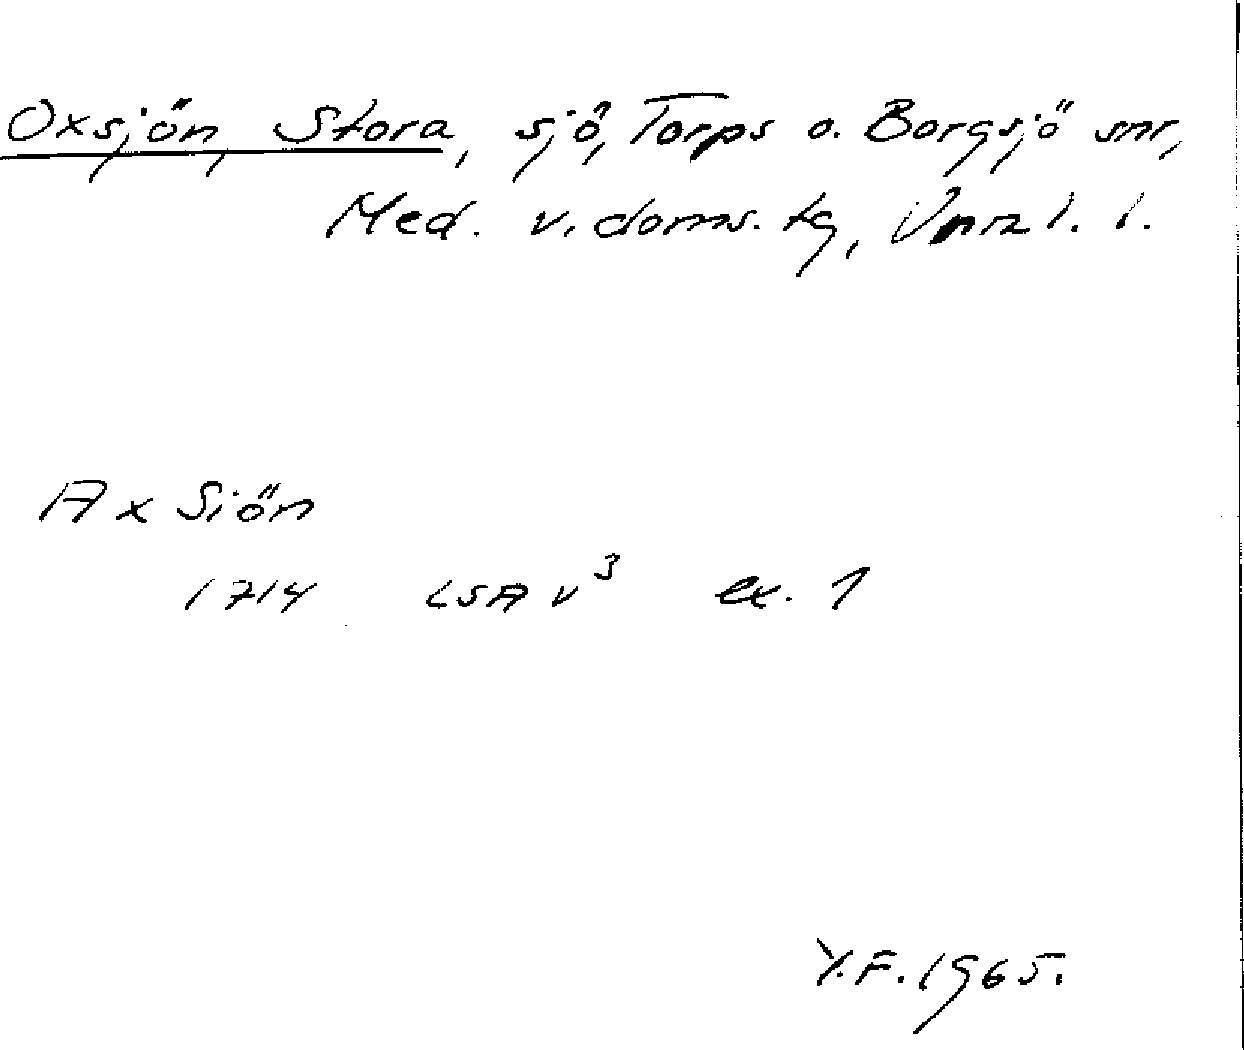 Oxsjön, Stora, sjö, Torps o. Borgsjö snr,
Med. v. doms. tg, Vnrl. l.
Ax Siön
1714 LSA v³ ex. 1
Y.F. 1965.